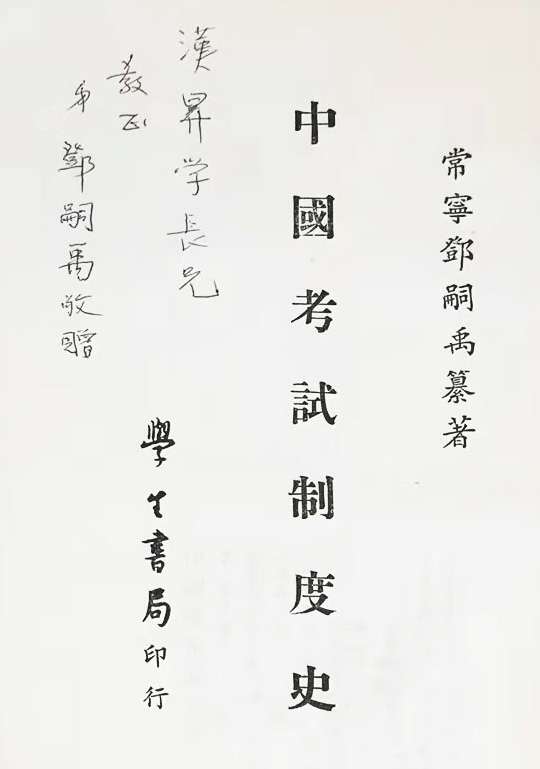 常寧鄧嗣禹纂著
中國考試制度史
漢昇学長兄
教正
弟鄧嗣禹敬贈
學生書局印行